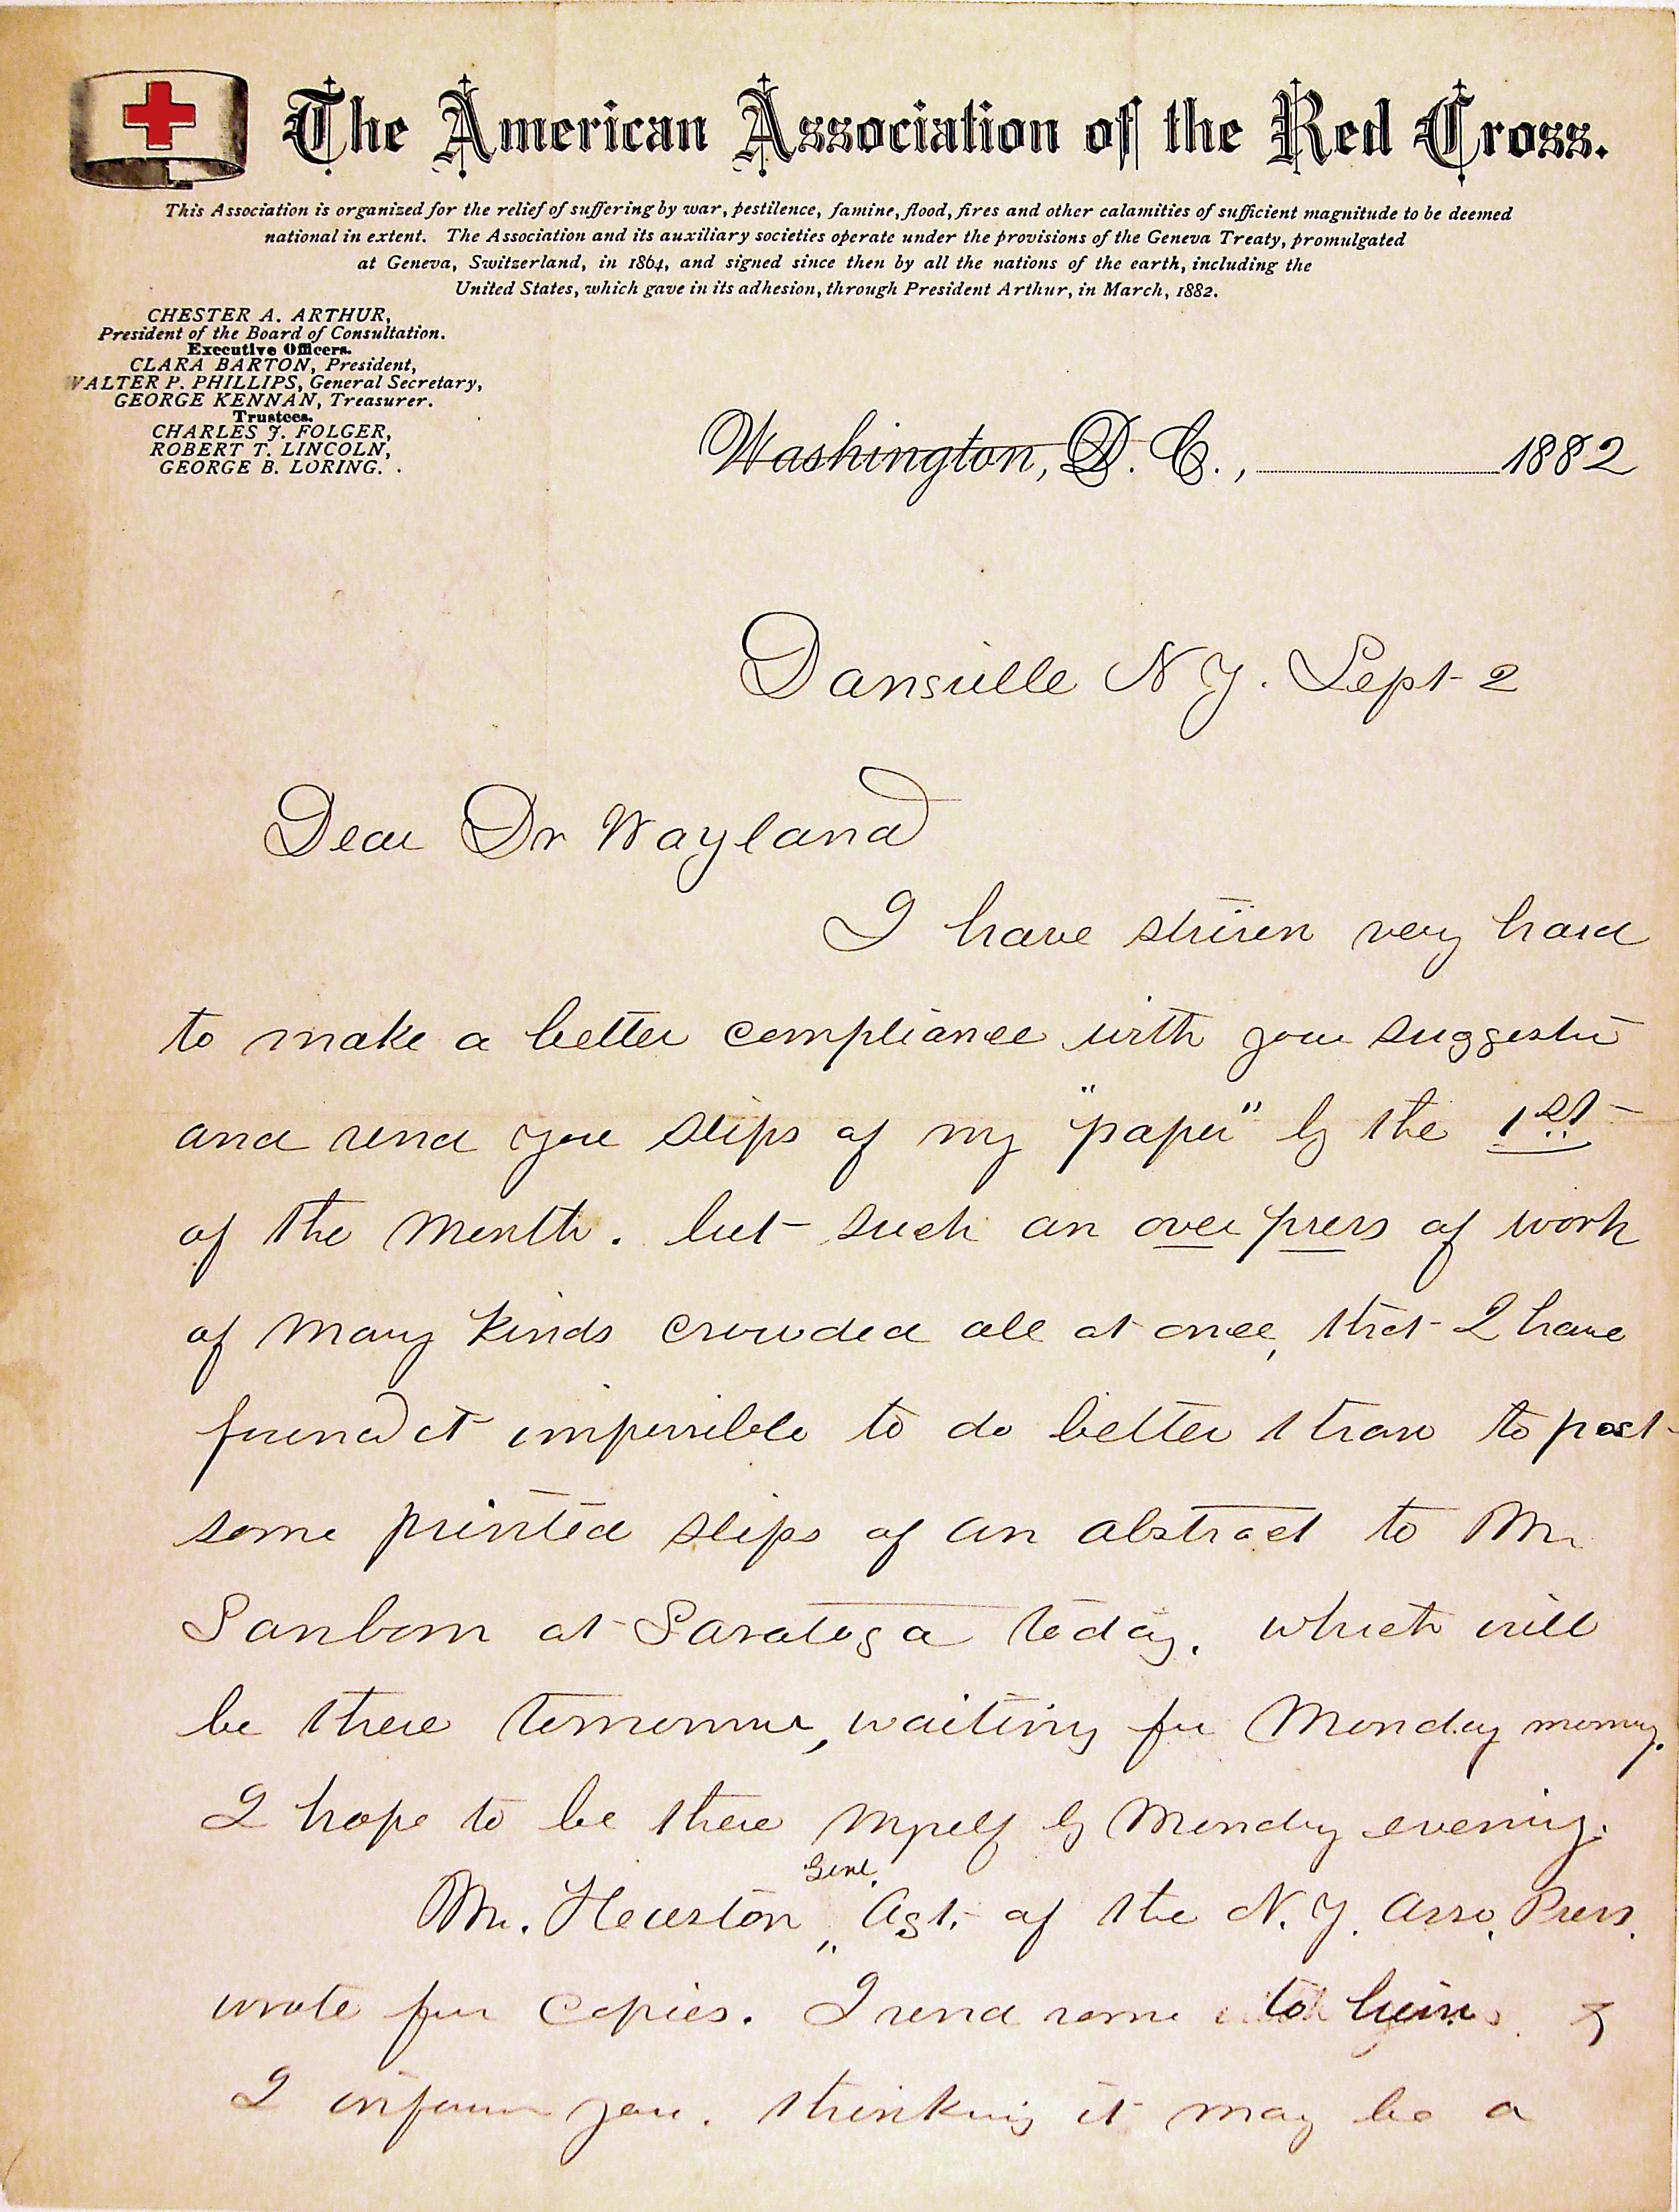 The American Association of the Red Cross.
This Association is organized for the relief of suffering by war, pestilence, famine, flood, fires and other calamities of sufficient magnitude to be deemed
national in extent. The Association and its auxiliary societies operate under the provisions of the Geneva Treaty, promulgated
at Geneva, Switzerland, in 1864, and signed since then by all the nations of the earth, including the
United States, which gave in its adhesion, through President Arthur, in March, 1882.
CHESTER A. ARTHUR,
President of the Board of Consultation.
Executive Officers.
CLARA BARTON, President,
WALTER P. PHILLIPS, General Secretary,
GEORGE KENNAN, Treasurer.
Trustees.
CHARLES J. FOLGER,
ROBERT T. LINCOLN,
GEORGE B. LORING.
Washington, D. C., 1882
Dansville N Y. Sept 2
Dear Dr Wayland
I have striven very hard
to make a better compliance with your suggestion
and send you slips of my "paper" by the 1st
of the month. but such an over press of work
of many kinds crowded all at once, that I have
found it impossible to do better than to post
some printed slips of an abstract to Mr
Sanborn at Saratoga today. which will
be there tomorrow, waiting for Monday morning.
I hope to be there myself by Monday evening.
Mr. Heuston Genl. Agt. of the N. Y. Asso. Press.
wrote for copies. I send some to him &
I inform you. thinking it may be a